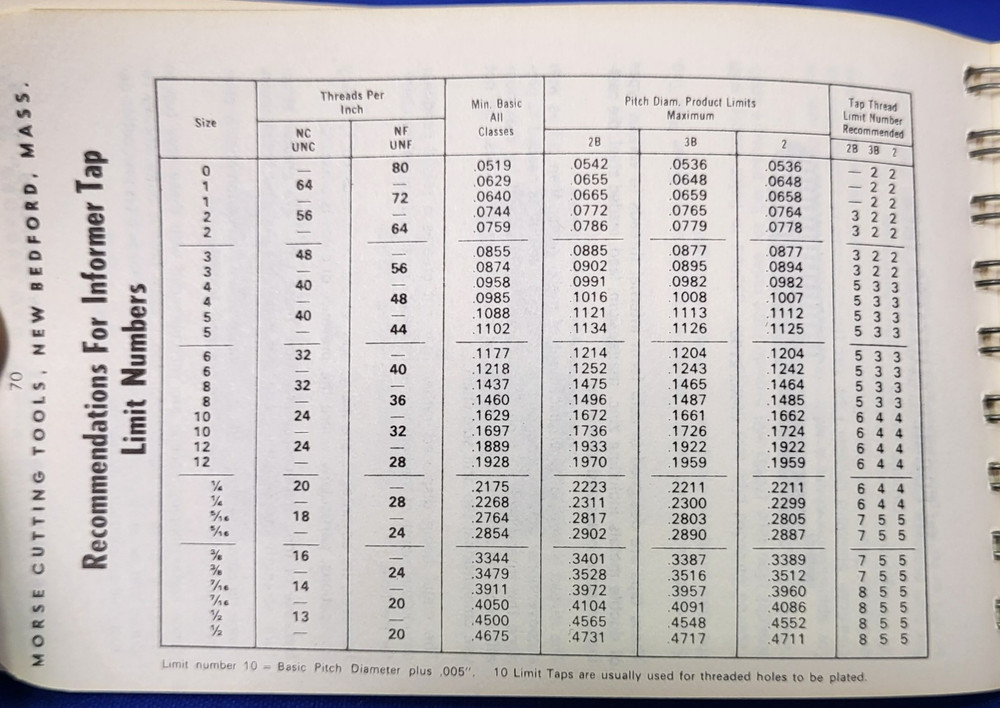 70
MORSE CUTTING TOOLS, NEW BEDFORD, MASS.
Recommendations For Informer Tap
Limit Numbers
Size | Threads Per Inch | Min. Basic All Classes | Pitch Diam. Product Limits Maximum | Tap Thread Limit Number Recommended
NC UNC | NF UNF | 2B | 3B | 2 | 2B 3B 2
0 — 80 .0519 .0542 .0536 .0536 — 2 2
1 64 — .0629 .0655 .0648 .0648 — 2 2
1 — 72 .0640 .0665 .0659 .0658 — 2 2
2 56 — .0744 .0772 .0765 .0764 3 2 2
2 — 64 .0759 .0786 .0779 .0778 3 2 2
3 48 — .0855 .0885 .0877 .0877 3 2 2
3 — 56 .0874 .0902 .0895 .0894 3 2 2
4 40 — .0958 .0991 .0982 .0982 5 3 3
4 — 48 .0985 .1016 .1008 .1007 5 3 3
5 40 — .1088 .1121 .1113 .1112 5 3 3
5 — 44 .1102 .1134 .1126 .1125 5 3 3
6 32 — .1177 .1214 .1204 .1204 5 3 3
6 — 40 .1218 .1252 .1243 .1242 5 3 3
8 32 — .1437 .1475 .1465 .1464 5 3 3
8 — 36 .1460 .1496 .1487 .1485 5 3 3
10 24 — .1629 .1672 .1661 .1662 6 4 4
10 — 32 .1697 .1736 .1726 .1724 6 4 4
12 24 — .1889 .1933 .1922 .1922 6 4 4
12 — 28 .1928 .1970 .1959 .1959 6 4 4
¼ 20 — .2175 .2223 .2211 .2211 6 4 4
¼ — 28 .2268 .2311 .2300 .2299 6 4 4
5/16 18 — .2764 .2817 .2803 .2805 7 5 5
5/16 — 24 .2854 .2902 .2890 .2887 7 5 5
⅜ 16 — .3344 .3401 .3387 .3389 7 5 5
⅜ — 24 .3479 .3528 .3516 .3512 7 5 5
7/16 14 — .3911 .3972 .3957 .3960 8 5 5
7/16 — 20 .4050 .4104 .4091 .4086 8 5 5
½ 13 — .4500 .4565 .4548 .4552 8 5 5
½ — 20 .4675 .4731 .4717 .4711 8 5 5
Limit number 10 = Basic Pitch Diameter plus .005". 10 Limit Taps are usually used for threaded holes to be plated.